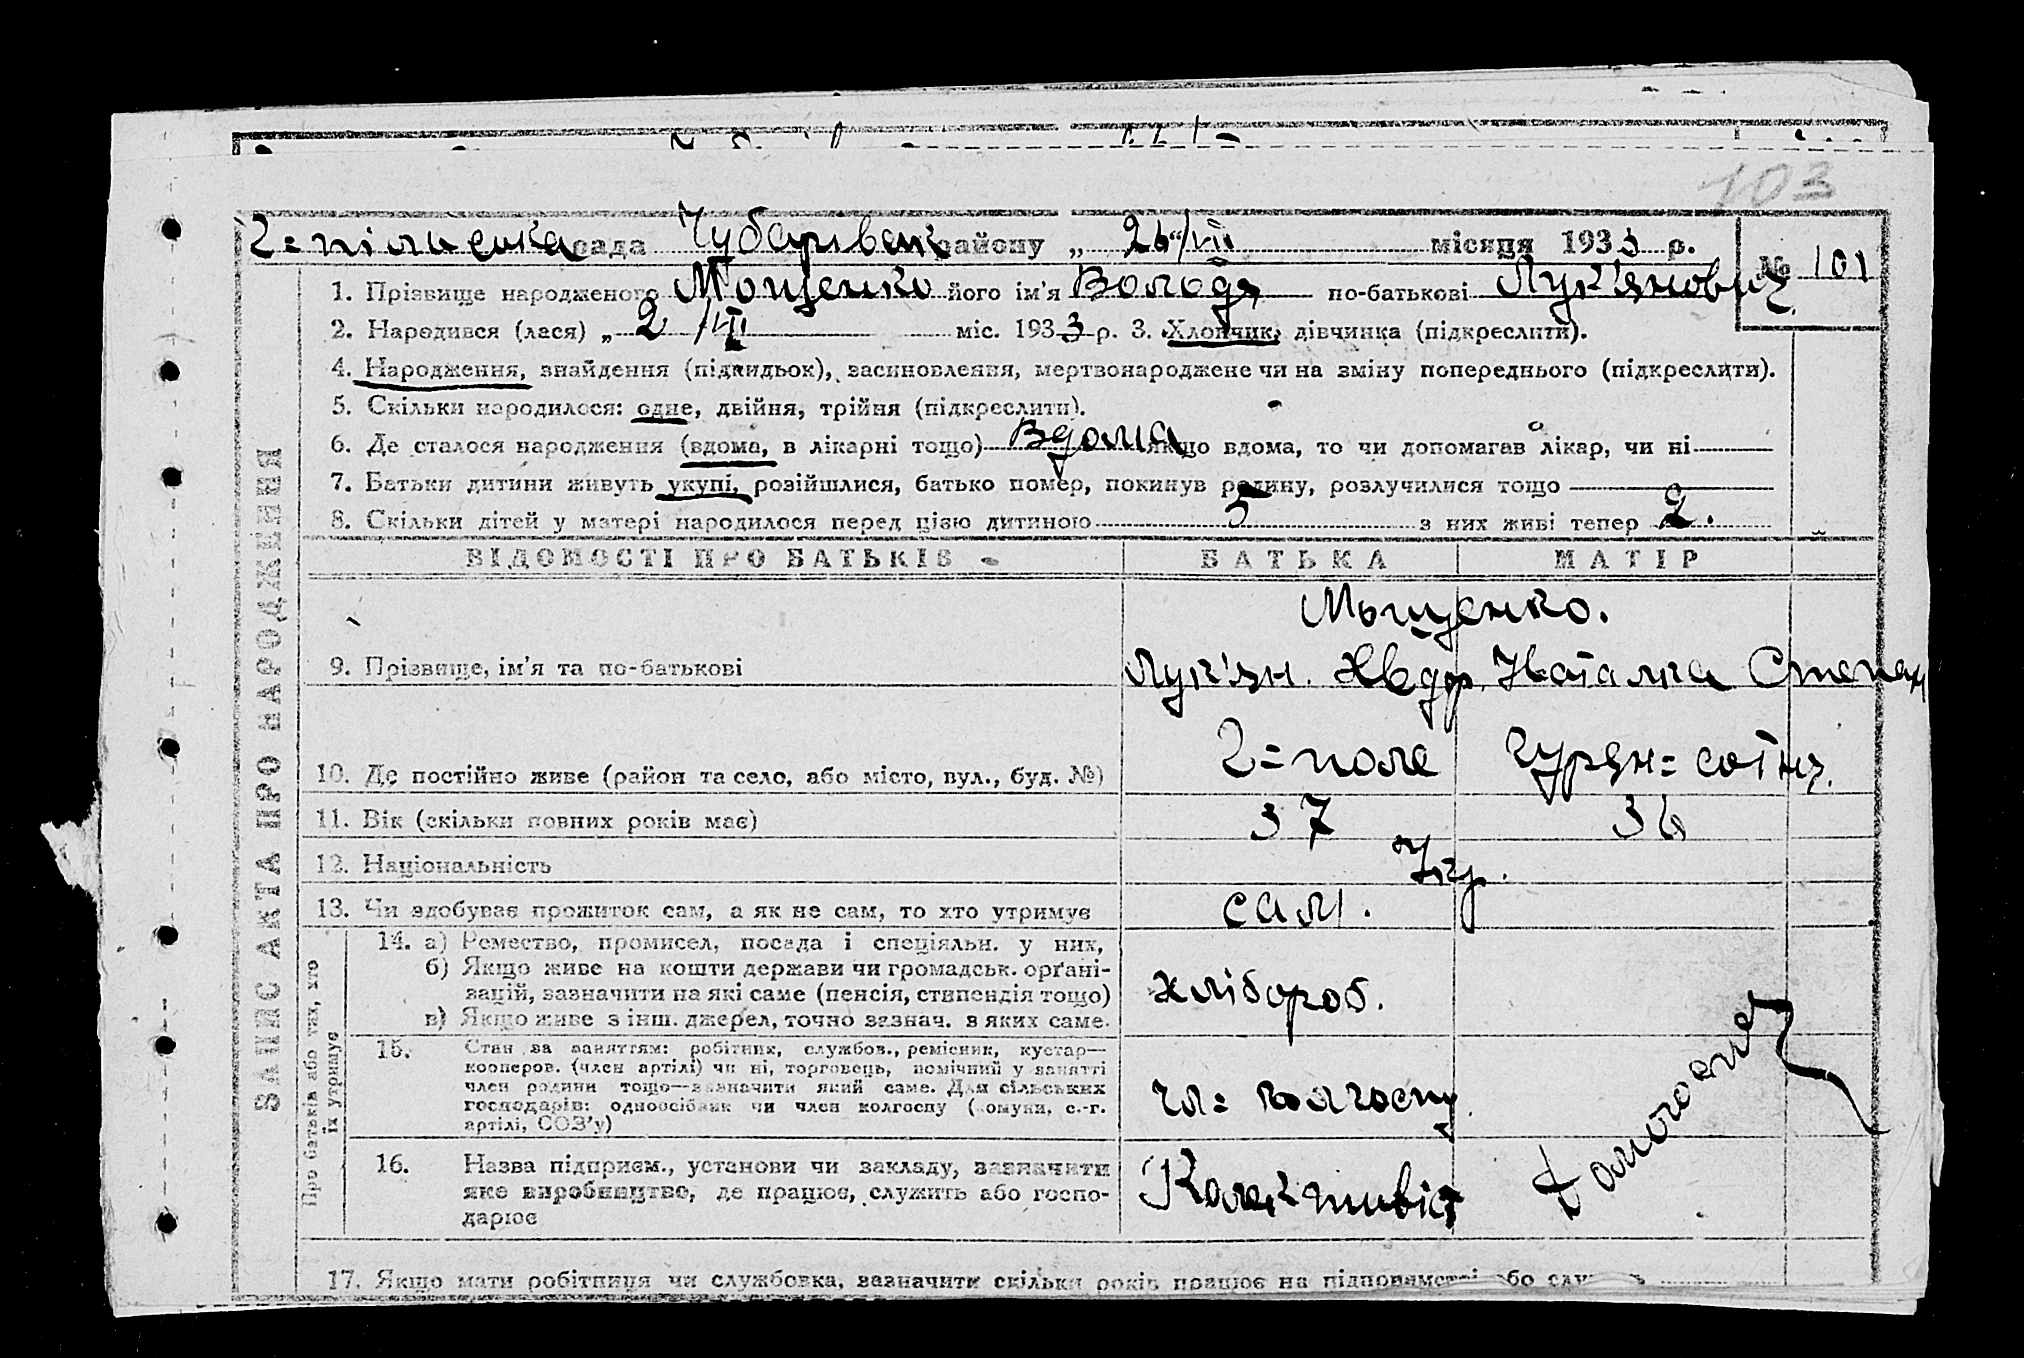 103
Г=пільська рада Чубарівськ району „ 26/VII місяця 1933 р. № 101
1. Прізвище народженого Мощенко його ім'я Володя по-батькові Лук'янович
2. Народився (лася) „ 2/VII міс. 1933 р. 3. Хлопчик, дівчинка (підкреслити).
4. Народження, знайдення (підкидьок), засиновлення, мертвонароджене чи на зміну попереднього (підкреслити).
5. Скільки народилося: одне, двійня, трійня (підкреслити).
6. Де сталося народження (вдома, в лікарні тощо) Вдома якщо вдома, то чи допомагав лікар, чи ні
7. Батьки дитини живуть укупі, розійшлися, батько помер, покинув родину, розлучилися тощо
8. Скільки дітей у матері народилося перед цією дитиною 5 з них живі тепер 2.
ВІДОМОСТІ ПРО БАТЬКІВ БАТЬКА МАТІР
Мощенко.
9. Прізвище, ім'я та по-батькові Лук'ян. Хведор. Наталка Степан
10. Де постійно живе (район та село, або місто, вул., буд. №) Г=поле
11. Вік (скільки повних років має) 37 36
12. Національність Укр.
13. Чи здобуває прожиток сам, а як не сам, то хто утримує сам.
14. а) Ремество, промисел, посада і спеціяльн. у них,
б) Якщо живе на кошти держави чи громадськ. орґані-
зацій, зазначити на які саме (пенсія, стипендія тощо) хлібороб.
в) Якщо живе з інш. джерел, точно зазнач. в яких саме.
15. Стан за заняттям: робітник, службов., ремісник, кустар—
кооперов. (член артілі) чи ні, торговець, помічний у занятті
член родини тощо—зазначити який саме. Для сільських
господарів: одноосібник чи член колгоспу (комуни, с.-г.
артілі, СОЗ'у) чл= колгоспу
16. Назва підприєм., установи чи закладу, зазначити
яке виробництво, де працює, служить або госпо-
дарює Колективіст
17. Якщо мати робітниця чи службовка, зазначити скільки років працює на підприємстві або служ
ЗАПИС АКТА ПРО НАРОДЖЕННЯ
Про батьків або тих, хто
їх утримує